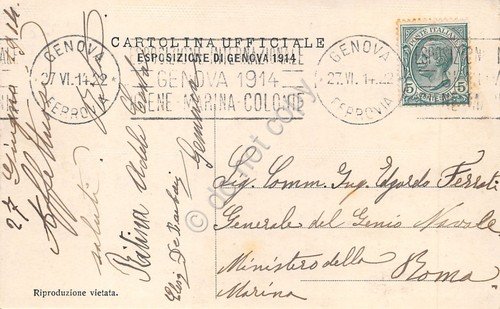 CARTOLINA UFFICIALE
ESPOSIZIONE DI GENOVA 1914
GENOVA
27.VI.14.22
FERROVIA
GENOVA 1914
IGIENE MARINA COLONIE
GENOVA
27.VI.14.22
FERROVIA
POSTE ITALIANE
5 CENT. 5
27 Giugno 914
Affettuosi
saluti
Gemma
Sig. Comm. Ing. Edgardo Ferrati
Generale del Genio Navale
Ministero della
Marina
Roma
Riproduzione vietata.
do not copy